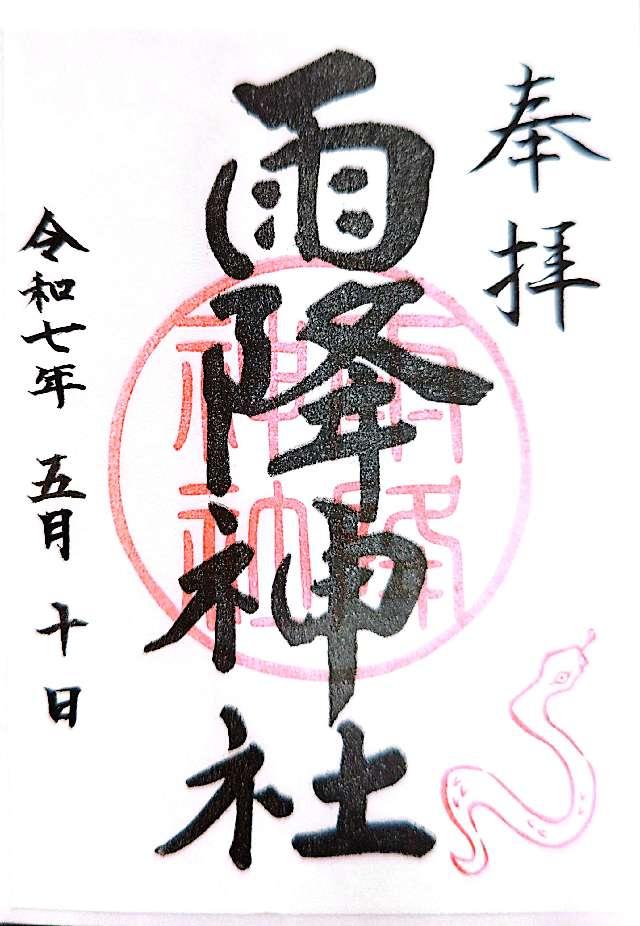 奉拝
雨降神社
雨降
神社
令和七年 五月 十日